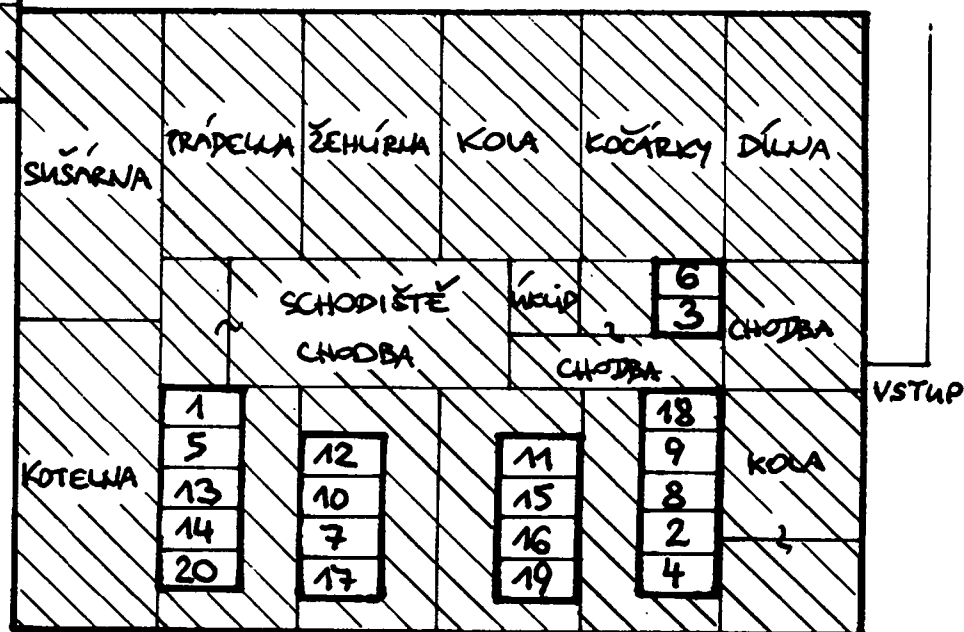 SUŠÁRNA
PRÁDELNA
ŽEHLÍRNA
KOLA
KOČÁRKY
DÍLNA
SCHODIŠTĚ
CHODBA
ÚKLID
6
3
CHODBA
CHODBA
VSTUP
KOTELNA
1
5
13
14
20
12
10
7
17
11
15
16
19
18
9
8
2
4
KOLA